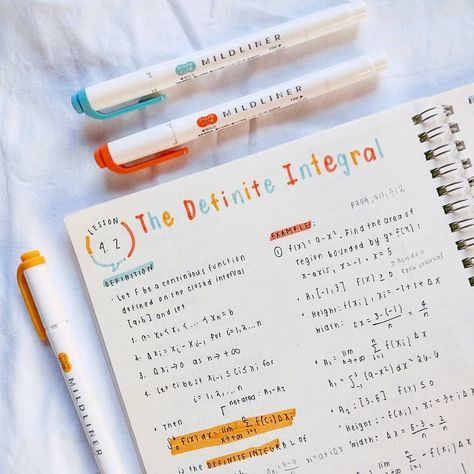 MILDLINER
MILDLINER
LESSON
4.2
The Definite Integral
DEFINITION
• Let f be a continuous function
defined on the closed interval
[a,b] and let
1. a = x₀ < x₁ < ... < xn = b
2. Δxᵢ = xᵢ - xᵢ-₁ for i = 1, 2, ... n
3. Δxᵢ → 0 as n → +∞
4. Let cᵢ be st xᵢ-₁ ≤ cᵢ ≤ xᵢ for
i = 1, 2, ... n
net area: A₁ - A₂
• Then
f(x) dx = lim n→+∞ Σ i=1 n f(cᵢ) Δxᵢ
is the DEFINITE INTEGRAL of
EXAMPLE:
① f(x) = 9 - x². Find the area of
region bounded by y = f(x),
x-axis, x = -1, x = 5
• A₁ [-1, 3] f(x) ≥ 0
• Height: f(xᵢ), xᵢ = -1 + iΔx
• Width: Δx = 3-(-1)/n = 4/n
• A₁ = lim n→+∞ Σ i=1 n f(xᵢ) Δx
• A₁ = ∫ -1 3 (9-x²) dx = 26.6
• A₂: [3, 5] f(x) ≤ 0
• Height: -f(xᵢ), xᵢ = 3 + iΔx
• Width: Δx = 5-3/n = 2/n
MILDLINER